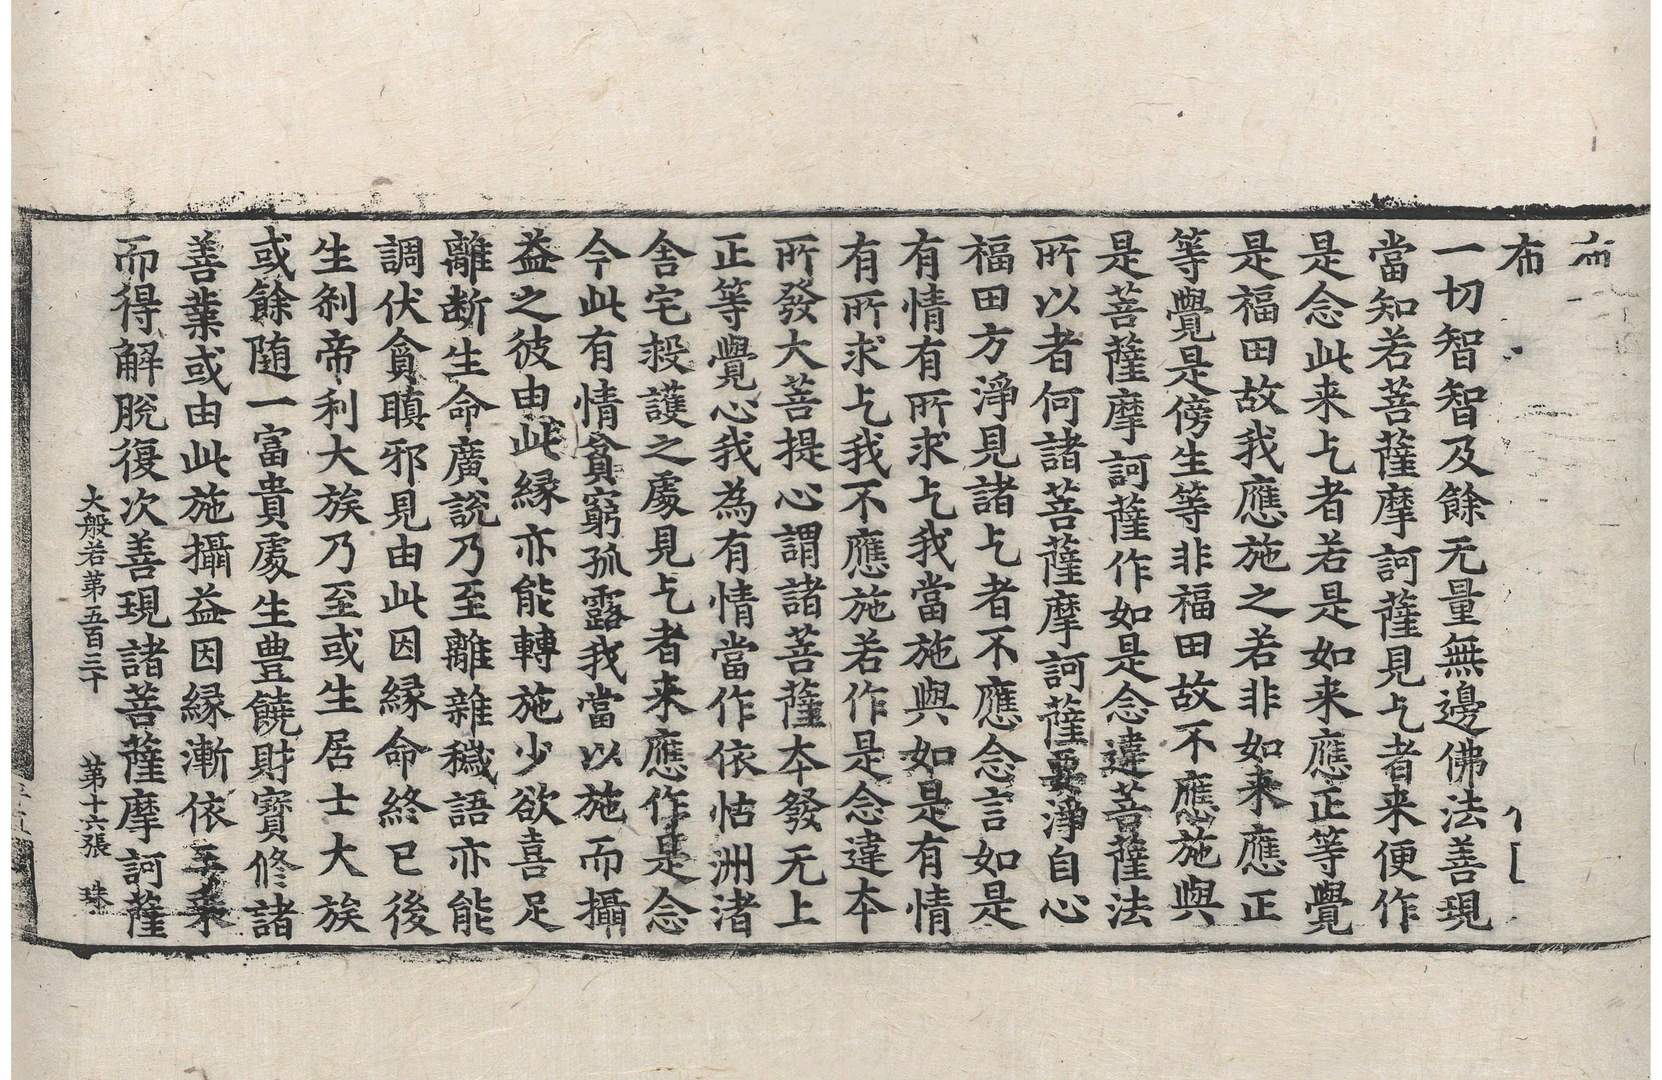 布
一切智智及餘无量無邊佛法善現
當知若菩薩摩訶薩見乞者来便作
是念此来乞者若是如来應正等覺
是福田故我應施之若非如来應正
等覺是傍生等非福田故不應施與
是菩薩摩訶薩作如是念違菩薩法
所以者何諸菩薩摩訶薩要淨自心
福田方淨見諸乞者不應念言如是
有情有所求乞我當施與如是有情
有所求乞我不應施若作是念違本
所發大菩提心謂諸菩薩夲發无上
正等覺心我為有情當作依怙洲渚
舎宅救護之處見乞者来應作是念
今此有情貧窮孤露我當以施而攝
益之彼由此縁亦能轉施少欲喜足
離断生命廣說乃至離雜穢語亦能
調伏貪瞋邪見由此因縁命終已後
生刹帝利大族乃至或生居士大族
或餘随一富貴處生豊饒財寳修諸
善業或由此施攝益因縁漸依三乗
而得解脫復次善現諸菩薩摩訶薩
大般若第五百三十 第十六張 珠